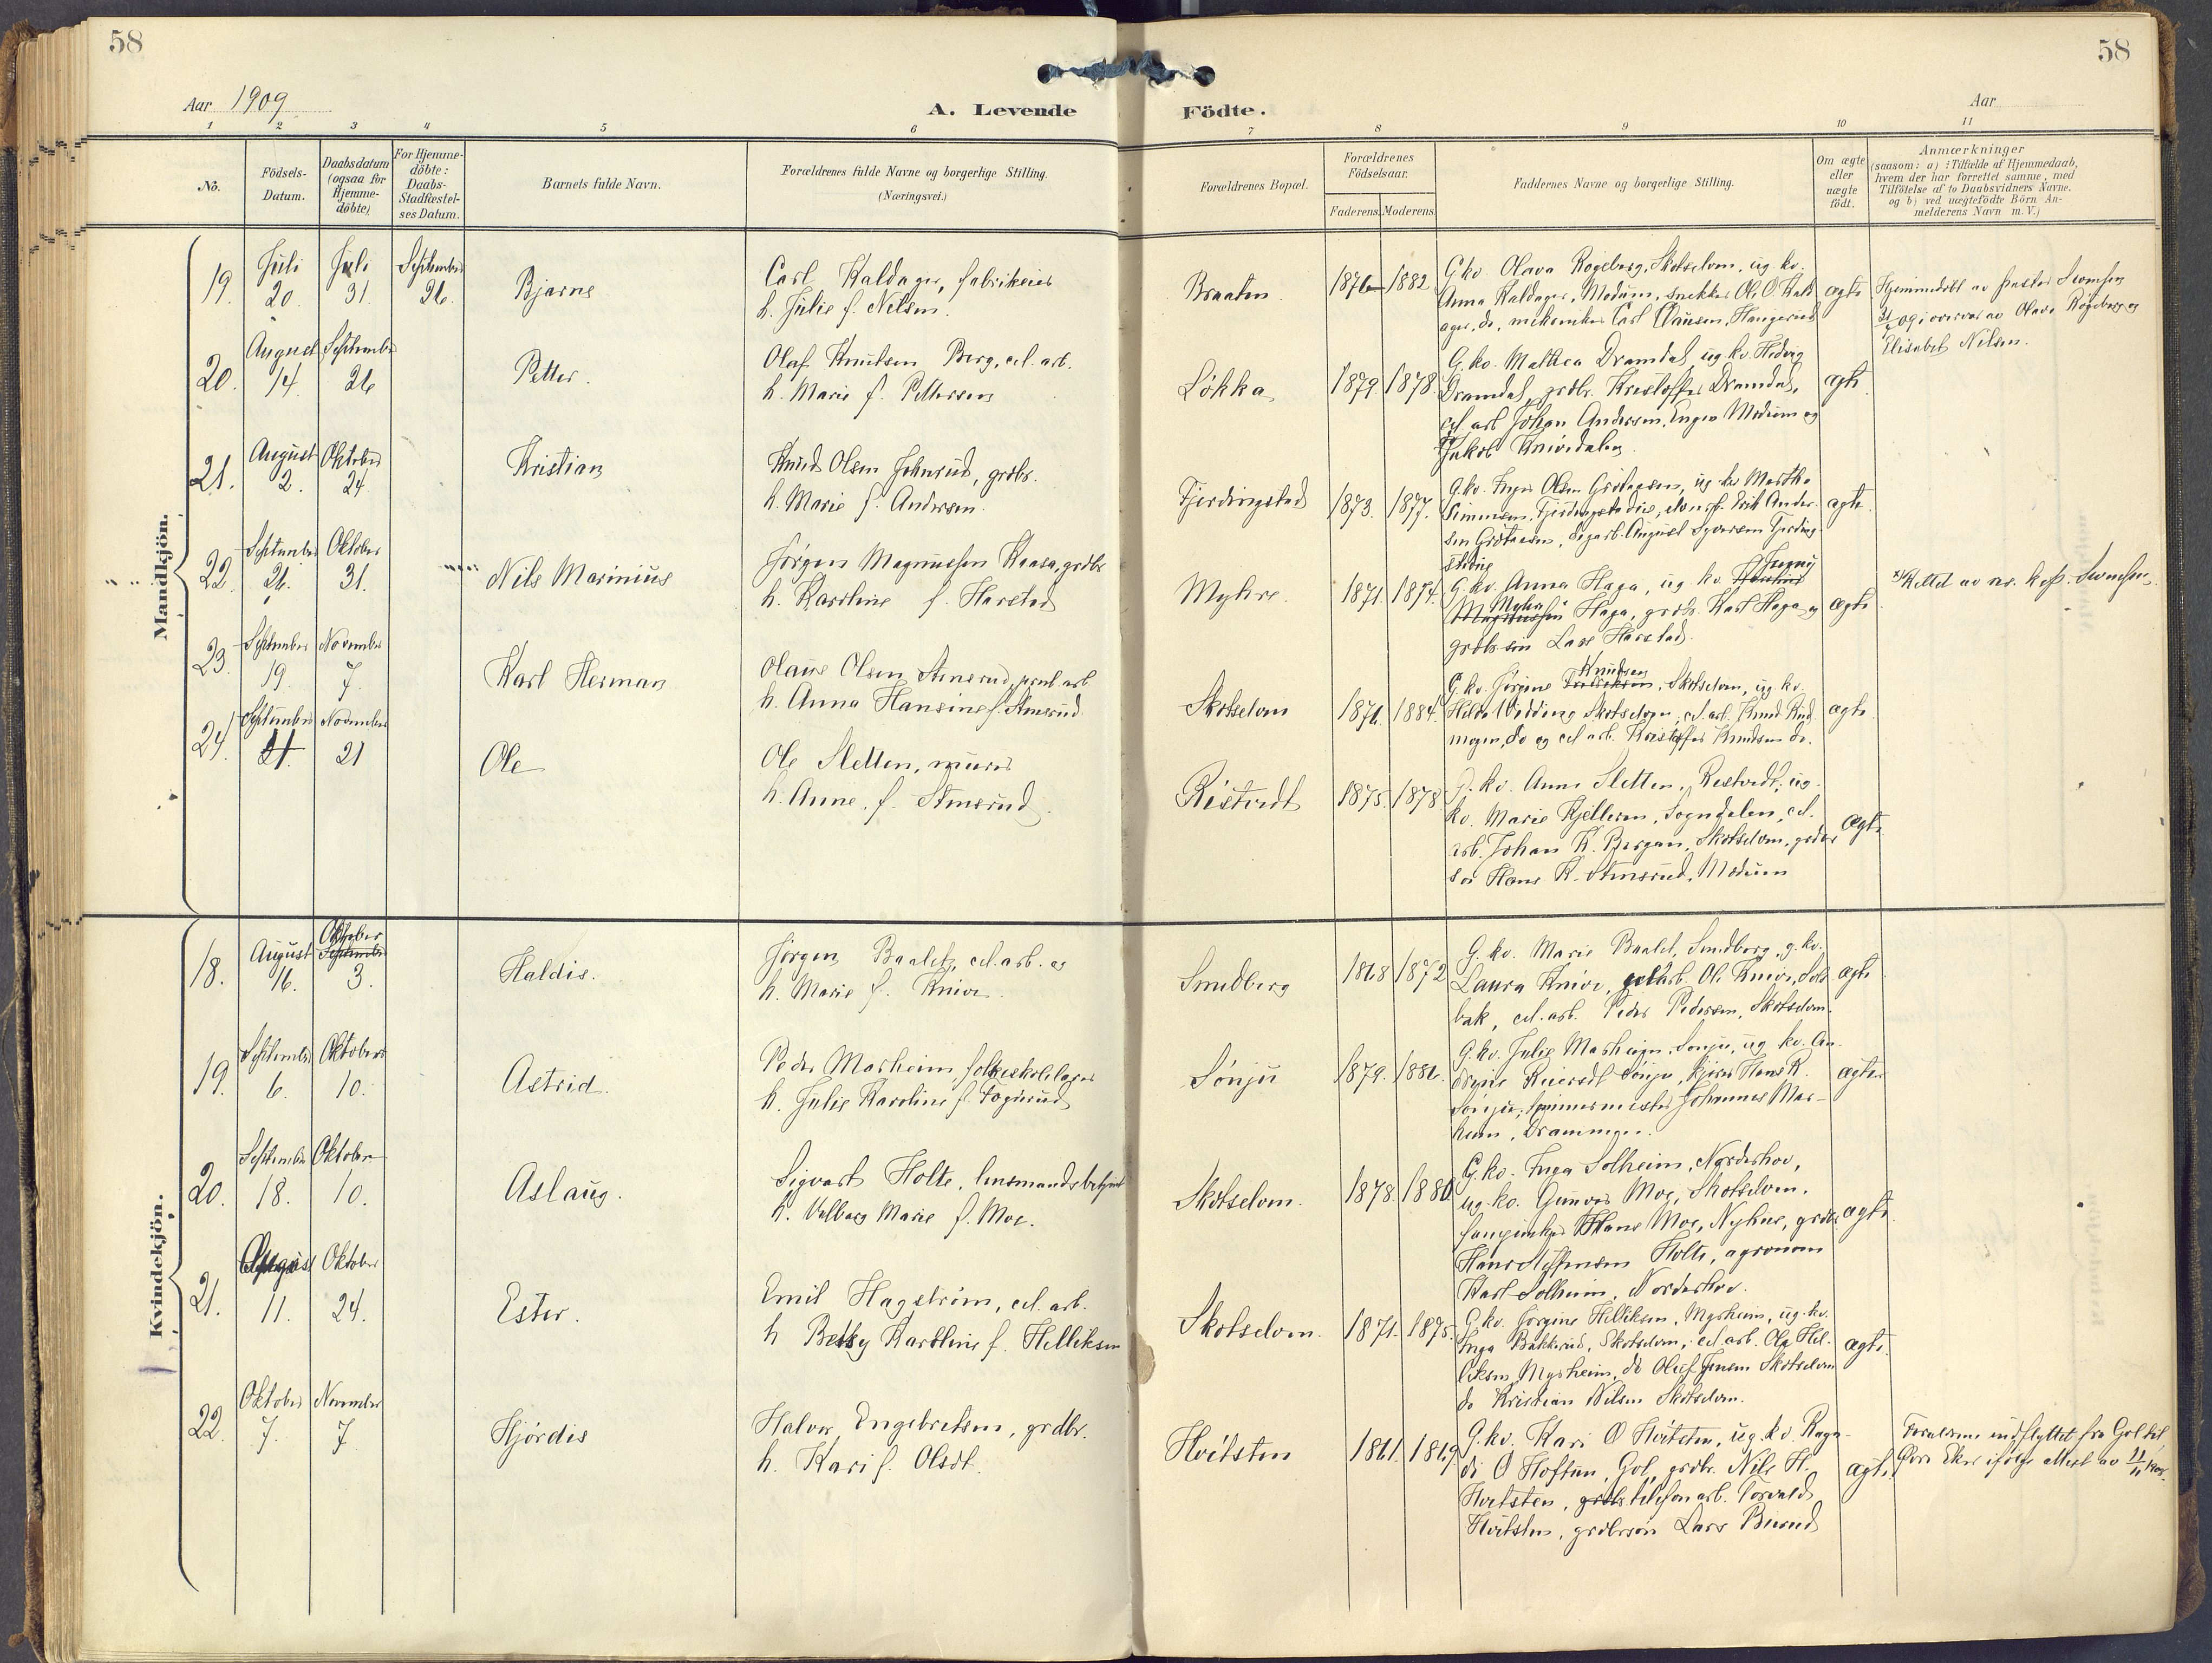 58
58
Aar 1909
A. Levende Födte.
Aar
1 2 3 4 5 6 7 8 9 10 11
No.
Födsels-Datum.
Daabsdatum (ogsaa for Hjemme-döbte)
For Hjemme-döbte: Daabs-Stadfæstel-ses Datum.
Barnets fulde Navn.
Forældrenes fulde Navne og borgerlige Stilling.
(Næringsvei.)
Forældrenes Bopæl.
Forældrenes Födselsaar.
Faderens. Moderens.
Faddernes Navne og borgerlige Stilling.
Om ægte eller uægte födt.
Anmærkninger
(saasom: a) i Tilfælde af Hjemmedaab,
hvem der har forrettet samme, med
Tilföielse af to Daabsvidners Navne.
og b) ved uægtefödte Börn An-
melderens Navn m. V.)
Mandkjön.
19. Juli 20. Juli 31. September 26. Bjarne
Carl Kaldager, fabrikeier
h. Julie f. Nilsen.
Braaten. 1876 1882
G.kv. Olava Rogeberg, Skotselven, ug. kv.
Anna Kaldager, Modum, snekker Ole O. Kald
ager, do, mekaniker Carl Clausen,
ægte
Hjemmedöbt av pastor
09 i overvær av Olava Rogeberg og
Elisabet Nilsen.
20. August 14. September 26 Petter.
Olaf Knutsen Berg, cel. arb.
h. Marie f. Pettersen
Løkka 1879. 1878.
G. kv. Mathea Dramdal, ug. kv. Hedvig
Dramdal, grdbr. Kristoffer Dramdal,
cel. arb. Johan Andersen, Enger Modum og
Jakob Knivedalen
ægte
21. August 2. Oktober 24 Kristian
Knud Olsen Johnsrud, grdbr.
h. Marie f. Andersen.
Fjerdingstad 1873. 1877.
G.kv. Inger Olsen Gråtaasen, ug. kv. Martha
Simensen, Fjerdingstadeie, Erik Ander-
sen Gråtaasen, dagarb. August Syversen Fjerding-
stadeie
ægte
22. September 26. Oktober 31. Nils Marinius
Jørgen Magnussen Kaasa, grdbr
h. Karoline f. Harstad
Myhre. 1871. 1874.
G.kv. Anna Haga, ug kv.
Myhre Haga, grdb. Karl Haga og
grdb. søn Lars Harstad.
ægte
Rettet av res. kap.
23. September 19. November 7. Karl Herman
Olaus Olsen Stensrud, arb
h. Anna Hansine f. Stensrud
Skotselven 1876. 1884.
G. kv. Jørgine Knudsen, Skotselven, ug. kv.
Hilda Widding Skotselven, cel. arb. Knud Knud
do og cel arb. Kristoffer Knudsen do.
ægte
24. September 21. November 21 Ole
Ole Sletten, murer
h. Anne. f. Stensrud.
Ristvedt 1875. 1878
G. kv. Anne Sletten, Ristvedt; ug.
kv. Marie Kjelleren, Sogndalen, cel.
arb. Johan K. Bergan, Skotselven, grdbr
søn Hans K. Stensrud, Modum
ægte
Kvindekjön.
18. August 16. Oktober September 3. Haldis.
Jørgen Baalet, cel. arb. og
h. Marie f. Knive.
Smedberg 1868 1872
G. kv. Marie Baalet, Smedberg, g. kv.
Laura Knive, cel arb. Ole Knive, Sol
bak, cel. arb. Peder Pedersen, Skotselven.
ægte
19. September 6. Oktober 10. Astrid.
Peder Marheim folkeskolelærer
h. Julie Karoline f. Fogderud
Sønju 1879. 1881.
G. kv. Julie Marheim, Sønju, ug kv. An-
drine Reiersdt Sønju, Hans R.
Sønju, tømmermester Johannes Mar-
heim, Drammen.
ægte
20. September 18. Oktober 10. Aslaug.
Sigvart Holte, lensmandsbetjent
h. Valborg Marie f. Moe.
Skotselven. 1878. 1880
G. kv. Inga Solheim, Norderhov,
ug. kv. Gunvor Moe, Skotselven,
Hans Moe, Nyhus, grdbr
Hans Steffensen Holte, agronom
Karl Solheim, Norderhov.
ægte
21. August 11. Oktober 24. Ester.
Emil Hagstrøm, cel. arb.
h Betsy Karoline f. Helliksen
Skotselven. 1871. 1875.
G. kv. Jørgine Helliksen, Myrheim, ug. kv.
Inga Bakkerud, Skotselven, cel. arb. Ole Hel-
liksen Myrheim, do Oluf Jensen Skotselven
do Kristian Nilsen Skotselven.
ægte.
22. Oktober 7. November 7 Hjørdis
Halvor Engebretsen, grdbr.
h. Kari f. Olsdt.
Hvitsten 1861. 1869
G. kv. Kari O Hvitsten, ug. kv. Ragn-
di O Hoftun, Gol, grdbr. Nils H.
Hvitsten, grdb. telefonarb. Torvald
Hvitsten, grdbrsøn Lars Burud
ægte
Forældrene indflyttet fra Gol til
Øvre Eker ifølge attest av